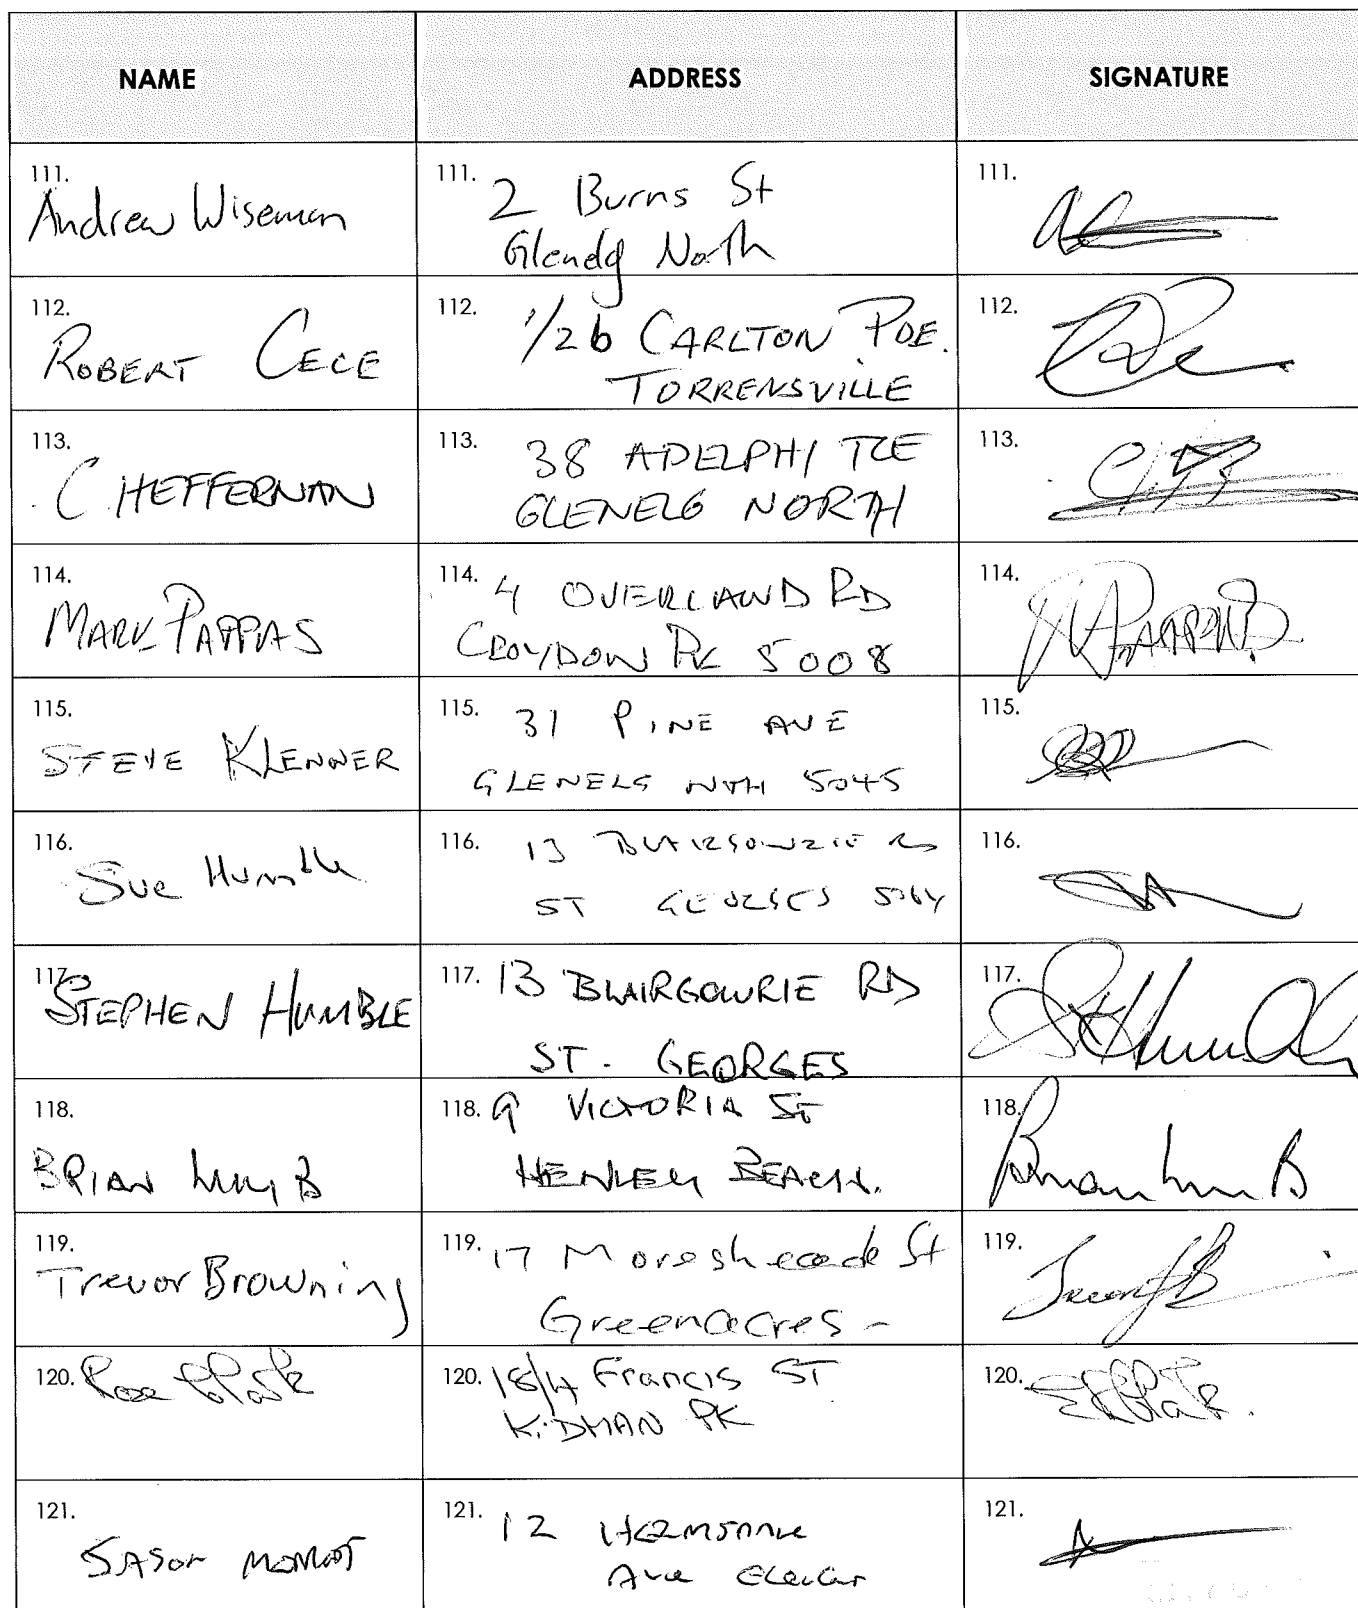 NAME ADDRESS SIGNATURE
111. 111. 111.
Andrew Wiseman 2 Burns St
Glenelg North
112. 112. 112.
ROBERT CECE 1/26 CARLTON PDE.
TORRENSVILLE
113. 113. 113.
C HEFFERNAN 38 ADELPHI TCE
GLENELG NORTH
114. 114. 114.
MARK PAPPAS 4 OVERLAND RD
CROYDON PK 5008
115. 115. 115.
STEVE KLENNER 31 PINE AVE
GLENELG NTH 5045
116. 116. 116.
Sue Humble 13 BLAIRGOWRIE RD
ST GEORGES 5064
117. 117. 117.
STEPHEN HUMBLE 13 BLAIRGOWRIE RD
ST. GEORGES
118. 118. 118.
BRIAN 9 VICTORIA ST
HENLEY BEACH.
119. 119. 119.
Trevor Browning 17 Moresheade St
Greenacres -
120. 120. 120.
18/4 Francis ST
KIDMAN PK
121. 121. 121.
12
Ave